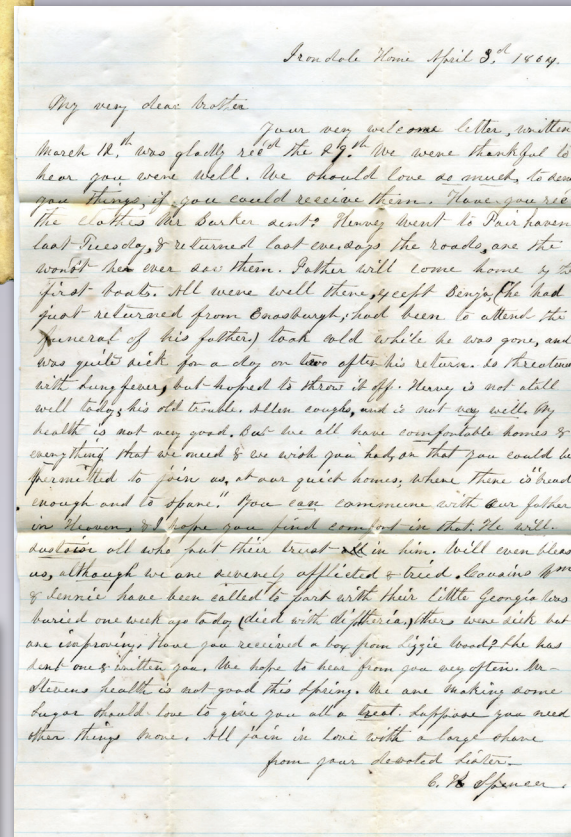 Irondale Home April 3.d 1864.
My very dear brother
Your very welcome letter, written
March 12.th was gladly rec'd the 29.th We were thankful to
hear you were well. We should love so much, to send
you things, if you could receive them. Have you rec
the clothes Mr Barker sent? Hervey went to Fairhaven
last Tuesday, & returned last eve. says the roads, are the
worst he ever saw them. Father will come home by the
first boats. All were well there, except Benja, (he had
just returned from Enosburgh, had been to attend the
funeral of his father) took cold while he was gone, and
was quite sick for a day or two after his return. is threatened
with lung fever, but hoped to throw it off. Hervey is not atall
well today, his old trouble. Allen coughs, and is not very well. My
health is not very good. But we all have comfortable homes &
everything that we need & we wish you had, or that you could be
permitted to join us, at our quiet homes, where there is "bread
enough and to spare." You can commune with our father
in Heaven, & I hope you find comfort in that. He will
sustain all who put their trust in him. Will even bless
us, although we are severely afflicted & tried. Cousins Wm
& Jennie have been called to part with their little Georgia was
buried one week ago today (died with diptheria,) others were sick but
are improving. Have you received a box from Lizzie Wood? She has
sent one & written you. We hope to hear from you very often. Mr
Stevens health is not good this Spring. We are making some
sugar should love to give you all a treat. Suppose you need
other things more. All join in love with a large share
from your devoted Sister.
C. H Spencer.